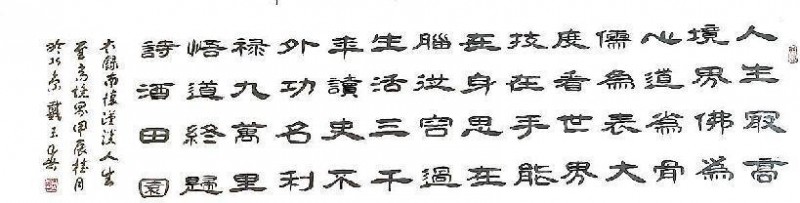 人生最高
境界佛為
心道為骨
儒為表大
度看世界
技在手能
在身思在
腦從容過
生活三千
年讀史不
外功名利
禄九萬里
悟道終歸
詩酒田園
右錄南懷瑾談人生
至高境界甲辰桂月
於北京戴玉